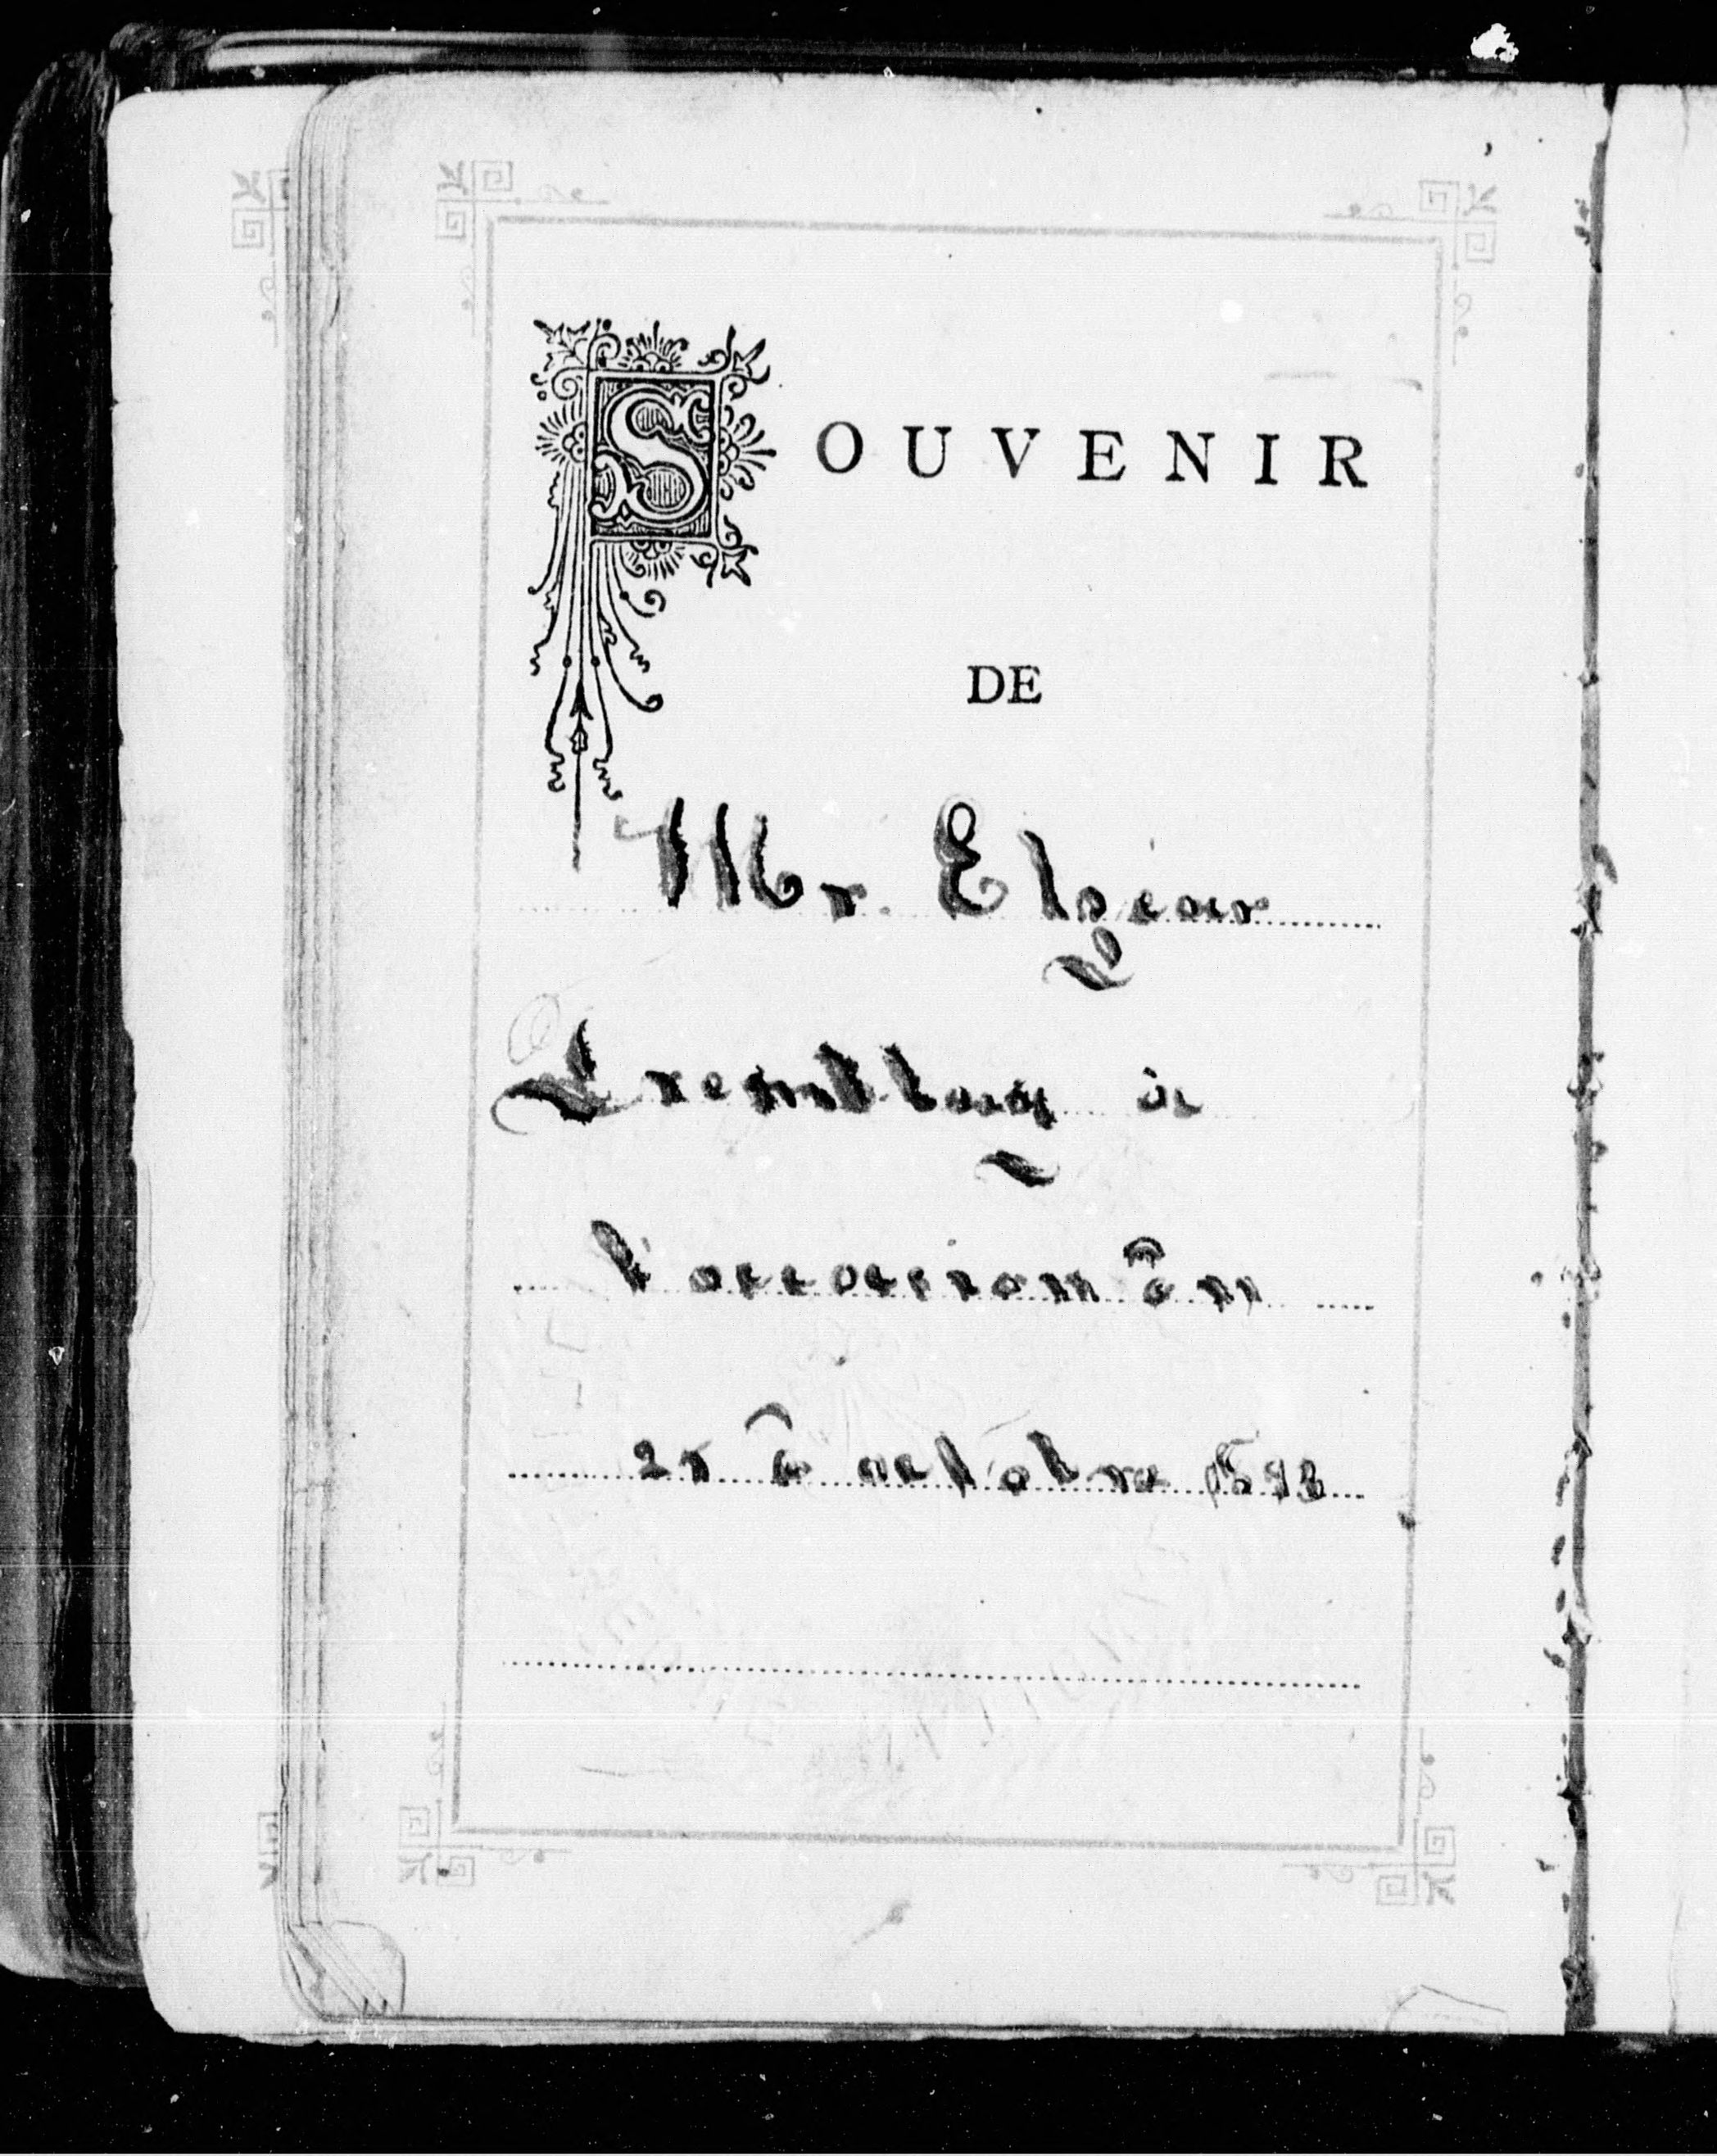 SOUVENIR
DE
Mr. Elzéar
Tremblay à
l'occasion du
21 octobre 1893